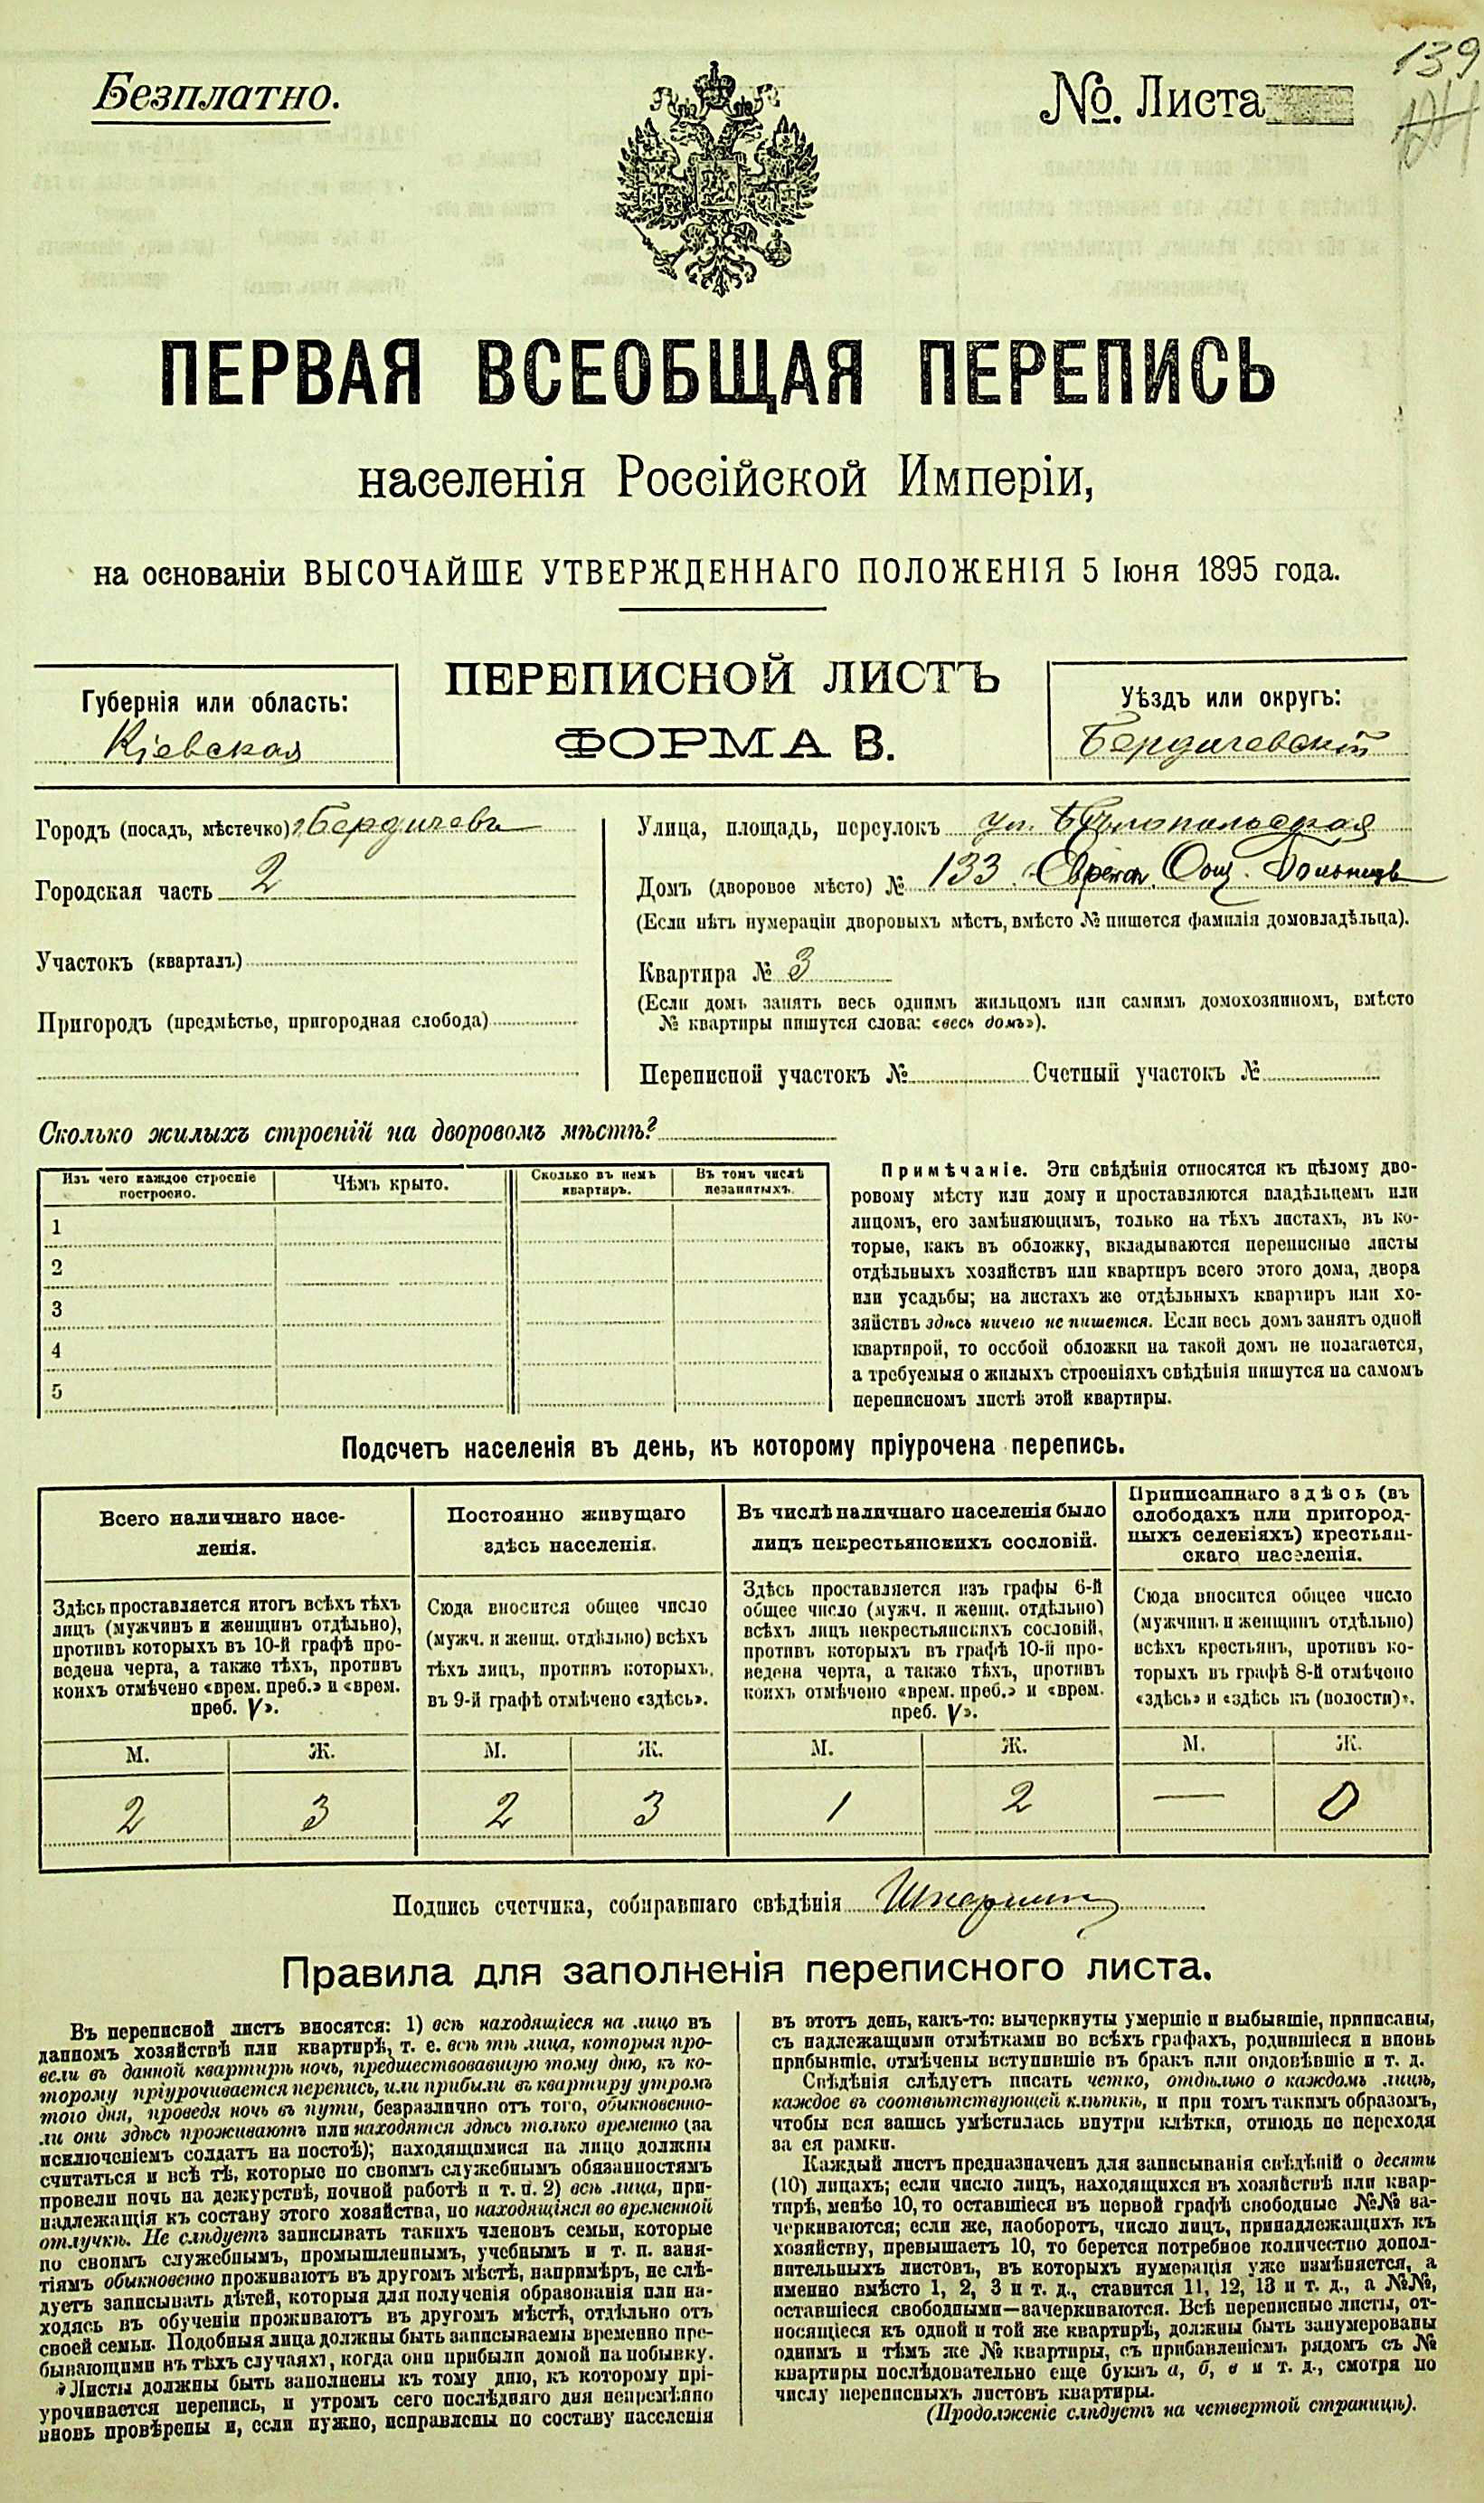 Безплатно.
№. Листа
139
ПЕРВАЯ ВСЕОБЩАЯ ПЕРЕПИСЬ
населенія Россійской Имперіи,
на основаніи ВЫСОЧАЙШЕ УТВЕРЖДЕННАГО ПОЛОЖЕНІЯ 5 Іюня 1895 года.
ПЕРЕПИСНОЙ ЛИСТЪ
ФОРМА В.
Губернія или область:
Кіевская
Уѣздъ или округъ:
Бердичевскій
Городъ (посадъ, мѣстечко) г. Бердичевъ
Городская часть 2
Участокъ (кварталъ)
Пригородъ (предмѣстье, пригородная слобода)
Улица, площадь, переулокъ ул. Бѣлопольская
Домъ (дворовое мѣсто) № 133. Еврейск. Общ. Больница
(Если нѣтъ нумераціи дворовыхъ мѣстъ, вмѣсто № пишется фамилія домовладѣльца).
Квартира № 3
(Если домъ занятъ весь однимъ жильцомъ или самимъ домохозяиномъ, вмѣсто
№ квартиры пишутся слова: «весь домъ»).
Переписной участокъ № Счетный участокъ №
Сколько жилыхъ строеній на дворовомъ мѣстѣ?
Изъ чего каждое строеніе
построено.
Чѣмъ крыто.
Сколько въ немъ
квартиръ.
Въ томъ числѣ
незанятыхъ.
1
2
3
4
5
Примѣчаніе. Эти свѣдѣнія относятся къ цѣлому дво-
ровому мѣсту или дому и проставляются владѣльцемъ или
лицомъ, его замѣняющимъ, только на тѣхъ листахъ, въ ко-
торые, какъ въ обложку, вкладываются переписные листы
отдѣльныхъ хозяйствъ или квартиръ всего этого дома, двора
или усадьбы; на листахъ же отдѣльныхъ квартиръ или хо-
зяйствъ здѣсь ничего не пишется. Если весь домъ занятъ одной
квартирой, то особой обложки на такой домъ не полагается,
а требуемыя о жилыхъ строеніяхъ свѣдѣнія пишутся на самомъ
переписномъ листѣ этой квартиры.
Подсчетъ населенія въ день, къ которому пріурочена перепись.
Всего наличнаго насе-
ленія.
Здѣсь проставляется итогъ всѣхъ тѣхъ
лицъ (мужчинъ и женщинъ отдѣльно),
противъ которыхъ въ 10-й графѣ про-
ведена черта, а также тѣхъ, противъ
коихъ отмѣчено «врем. преб.» и «врем.
преб. V».
М. Ж.
2 3
Постоянно живущаго
здѣсь населенія.
Сюда вносится общее число
(мужч. и женщ. отдѣльно) всѣхъ
тѣхъ лицъ, противъ которыхъ,
въ 9-й графѣ отмѣчено «здѣсь».
М. Ж.
2 3
Въ числѣ наличнаго населенія было
лицъ некрестьянскихъ сословій.
Здѣсь проставляется изъ графы 6-й
общее число (мужч. и женщ. отдѣльно)
всѣхъ лицъ некрестьянскихъ сословій,
противъ которыхъ въ графѣ 10-й про-
ведена черта, а также тѣхъ, противъ
коихъ отмѣчено «врем. преб.» и «врем.
преб. V».
М. Ж.
1 2
Приписаннаго здѣсь (въ
слободахъ или пригород-
ныхъ селеніяхъ) крестьян-
скаго населенія.
Сюда вносится общее число
(мужчинъ и женщинъ отдѣльно)
всѣхъ крестьянъ, противъ ко-
торыхъ въ графѣ 8-й отмѣчено
«здѣсь» и «здѣсь къ (волости)».
М. Ж.
— 0
Подпись счетчика, собиравшаго свѣдѣнія
Правила для заполненія переписного листа.
Въ переписной листъ вносятся: 1) всѣ находящіеся на лицо въ
данномъ хозяйствѣ или квартирѣ, т. е. всѣ тѣ лица, которыя про-
вели въ данной квартирѣ ночь, предшествовавшую тому дню, къ ко-
торому пріурочивается перепись, или прибыли въ квартиру утромъ
того дня, проведя ночь въ пути, безразлично отъ того, обыкновенно-
ли они здѣсь проживаютъ или находятся здѣсь только временно (за
исключеніемъ солдатъ на постоѣ); находящимися на лицо должны
считаться и всѣ тѣ, которые по своимъ служебнымъ обязанностямъ
провели ночь на дежурствѣ, ночной работѣ и т. п. 2) всѣ лица, при-
надлежащія къ составу этого хозяйства, но находящіяся во временной
отлучкѣ. Не слѣдуетъ записывать такихъ членовъ семьи, которые
по своимъ служебнымъ, промышленнымъ, учебнымъ и т. п. заня-
тіямъ обыкновенно проживаютъ въ другомъ мѣстѣ, напримѣръ, не слѣ-
дуетъ записывать дѣтей, которыя для полученія образованія или на-
ходясь въ обученіи проживаютъ въ другомъ мѣстѣ, отдѣльно отъ
своей семьи. Подобныя лица должны быть записываемы временно пре-
бывающими въ тѣхъ случаяхъ, когда они прибыли домой на побывку.
Листы должны быть заполнены къ тому дню, къ которому прі-
урочивается перепись, и утромъ сего послѣдняго дня непремѣнно
вновь провѣрены и, если нужно, исправлены по составу населенія
въ этотъ день, какъ-то: вычеркнуты умершіе и выбывшіе, приписаны,
съ надлежащими отмѣтками во всѣхъ графахъ, родившіеся и вновь
прибывшіе, отмѣчены вступившіе въ бракъ или овдовѣвшіе и т. д.
Свѣдѣнія слѣдуетъ писать четко, отдѣльно о каждомъ лицѣ,
каждое въ соотвѣтствующей клѣткѣ, и при томъ такимъ образомъ,
чтобы вся запись умѣстилась внутри клѣтки, отнюдь не переходя
за ея рамки.
Каждый листъ предназначенъ для записыванія свѣдѣній о десяти
(10) лицахъ; если число лицъ, находящихся въ хозяйствѣ или квар-
тирѣ, менѣе 10, то оставшіеся въ первой графѣ свободные №№ за-
черкиваются; если же, наоборотъ, число лицъ, принадлежащихъ къ
хозяйству, превышаетъ 10, то берется потребное количество допол-
нительныхъ листовъ, въ которыхъ нумерація уже измѣняется, а
именно вмѣсто 1, 2, 3 и т. д., ставится 11, 12, 13 и т. д., а №№,
оставшіеся свободными—зачеркиваются. Всѣ переписные листы, от-
носящіеся къ одной и той же квартирѣ, должны быть занумерованы
однимъ и тѣмъ же № квартиры, съ прибавленіемъ рядомъ съ №
квартиры послѣдовательно еще буквъ а, б, в и т. д., смотря по
числу переписныхъ листовъ квартиры.
(Продолженіе слѣдуетъ на четвертой страницѣ).